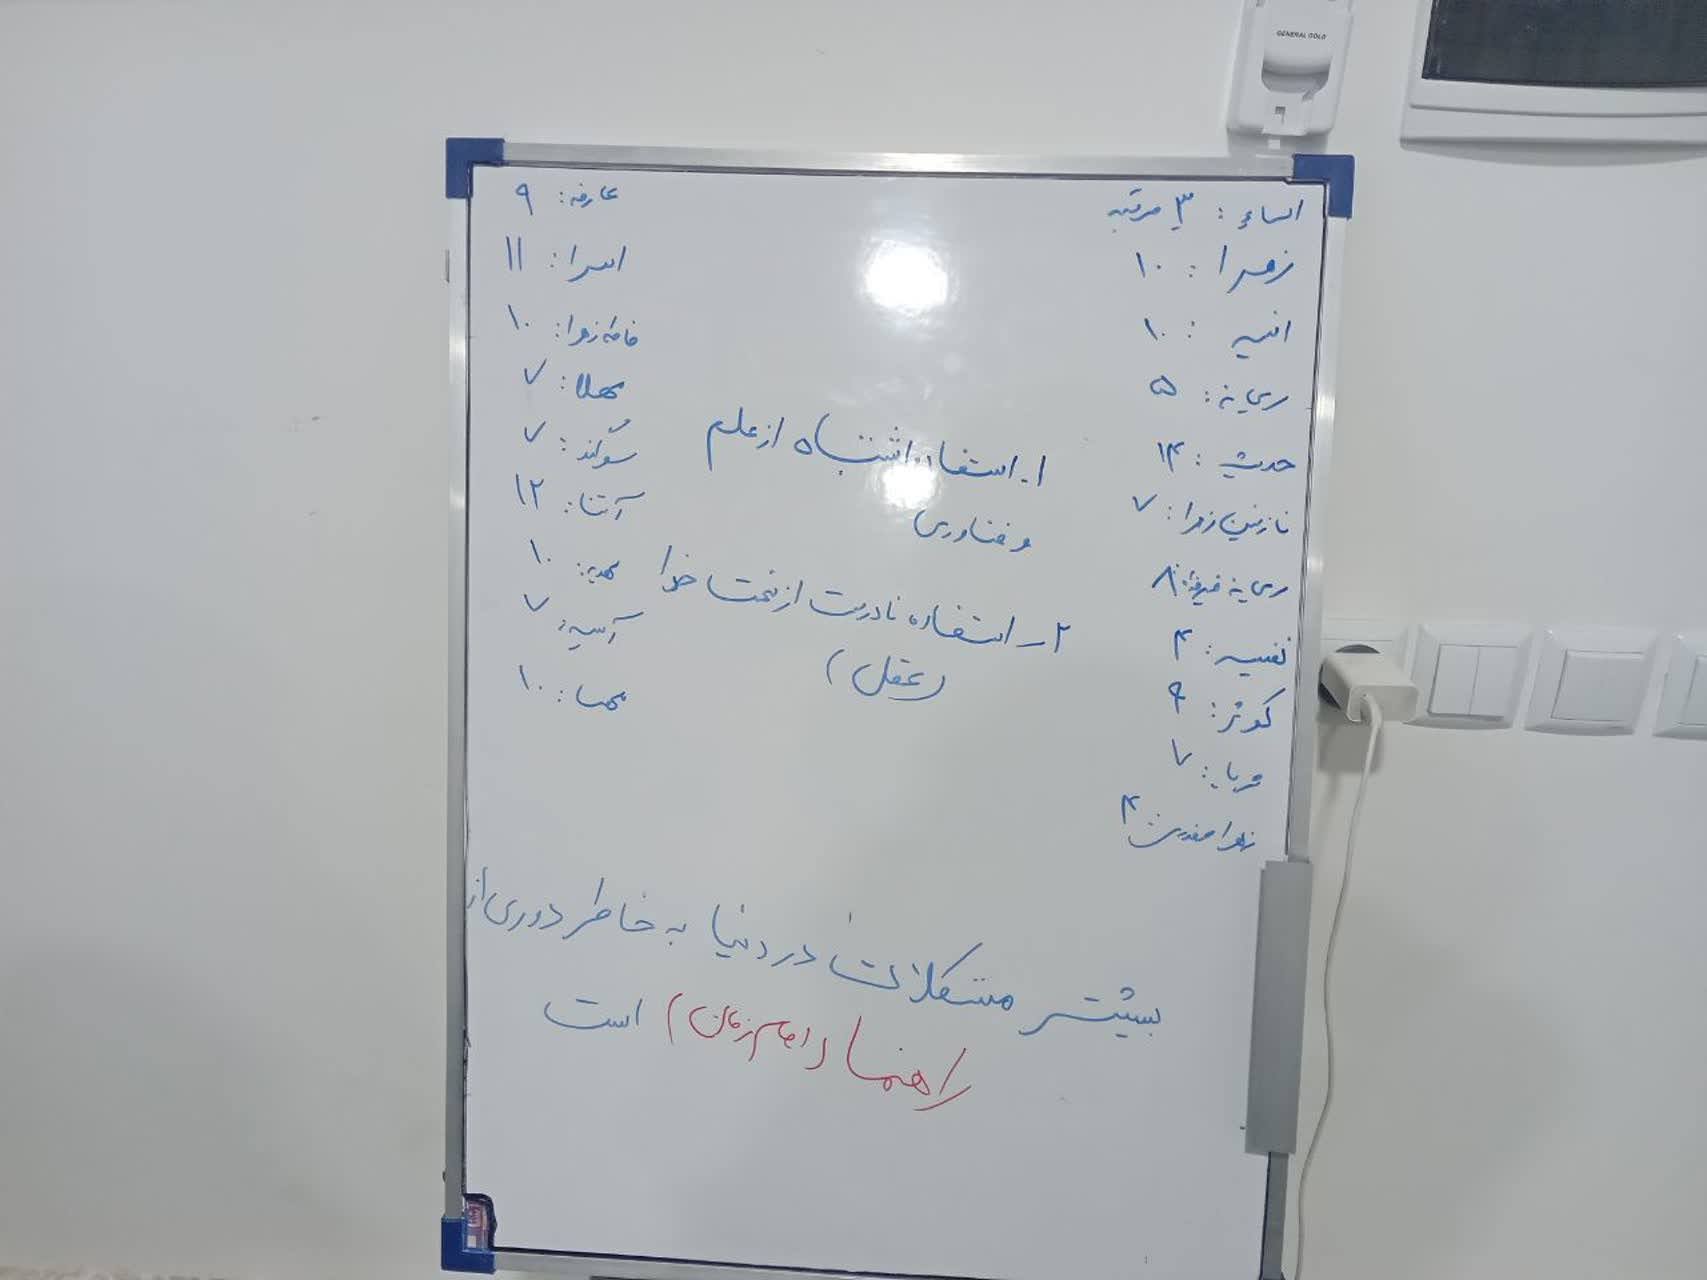 GENERAL GOLD
اسماء : ۳ مرتبه
زهرا : ۱۰
انسیه : ۱۰
ریحانه : ۵
حدیث : ۱۴
نازنین زهرا : ۷
ریحانه : ۸
نفیسه : ۴
کوثر : ۹
۷
زهرا صفدری : ۴
عارفه : ۹
اسرا : ۱۱
فاطمه زهرا : ۱۰
مهلا : ۷
سوگند : ۷
آتنا : ۱۲
مهدیه : ۱۰
آسیه : ۷
مهسا : ۱۰
۱. استفاده اشتباه از علم
و فناوری
۲ــ استفاده نادرست از نعمت خدا
(عقل)
بیشتر مشکلات در دنیا به خاطر دوری از
راهنما (امام زمان) است